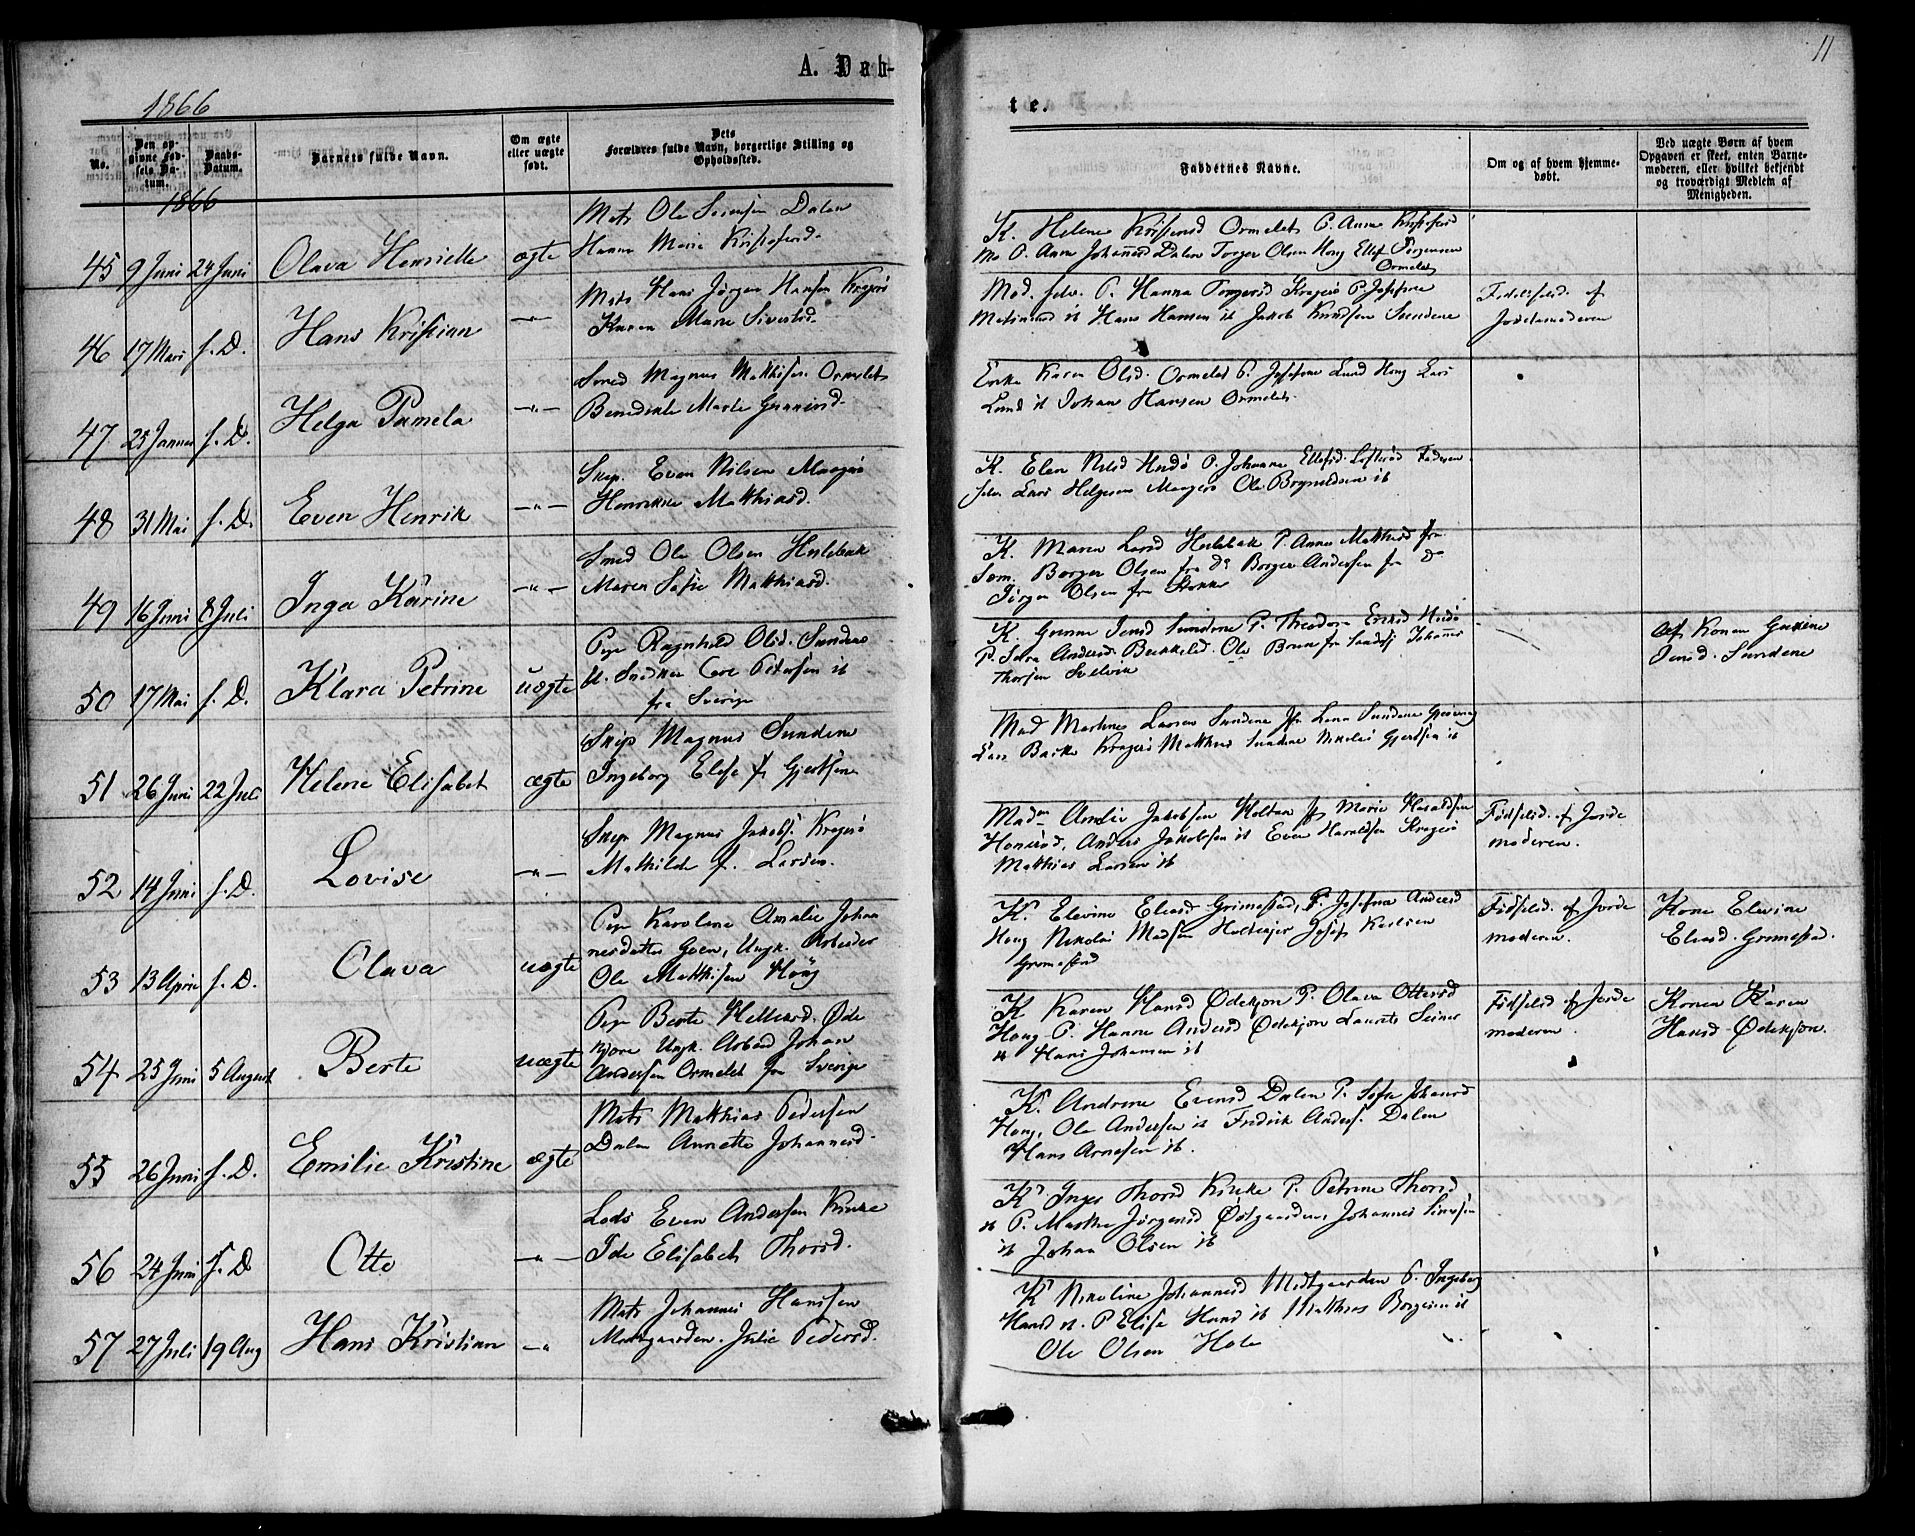 11
A. Døb-
te.
1866
No.
Den opgivne Fødsels Datum.
Daabs-Datum.
Barnets fulde Navn.
Om ægte eller uægte født.
Dets Forældres fulde Navn, borgerlige Stilling og Opholdssted.
Faddernes Navne.
Om og af hvem hjemme-døbt.
Ved uægte Børn af hvem Opgaven er skeet, enten Barne-moderen, eller hvilket bekjendt og troværdigt Medlem af Menigheden.
1866
45 9 Juni 24 Juni Olava Henriette ægte
Mats Ole Sørensen Dalen
Hanna Marie Kristofersd.
K. Helene Kristensd Ormelet P. Anne Kristofersd
P. Anne Johannesd Dalen Torger Olsen Houg Ellef Jørgensen
Ormelet
46 17 Mars s. D. Hans Kristian —"—
Mats Hans Jørgen Hansen Kragerø
Karen Marie Siversd.
Mod. selv. P. Hanna Torgersd Kragerø P. Josefine
Hans Hansen ib Jakob Knudsen Sundene
Fødselsd. af
Jordemoderen
47 25 Januar s. D. Helga Pamela —"—
Smed Magnus Matthisen Ormelet
Benedikte Marie Gunnersd.
Enke Karen Olsd. Ormelet P. Josefine Lund Houg Lars
Lund ib Johan Hansen Ormelet.
48 31 Mai s. D. Even Henrik —"—
Skip. Even Nilsen Mågerø
Henrikke Matthiasd.
K. Elen Nilsd Hvdø P. Johanne Ellefsd. Lofterød Faderen
selv Lars Helgesen Maagerø Ole Brynildsen ib
49 16 Juni 8 Juli Inga Karine —"—
Smed Ole Olsen Hulebak
Maren Sofie Matthiasd.
K. Maren Larsd Hulebak P. Anne Matthiasd fra
Søm. Borger Olsen fra Do Borger Andersen fra Do
Jørgen Olsen fra Stokke
50 17 Mai s. D. Klara Petrine uægte
Pige Ragnhild Olsd. Sundene
U. Snedker Petersen ib
fra Sverige
K. Grenne Jensd Sundene P. Theodora Eriksd Hvdø
P. Andersd. Bekkeled. Ole Brun fra Sandefj Johannes
Thorsen Svelvik
Af Konen
Jensd. Sundene
51 26 Juni 22 Juli Helene Elisabet ægte
Skip Magnus Sundene
Ingeborg Elise f. Gjertsen
Mad Martine Larsen Sundene Jfr Lena Sundene
Lars Bakke Kragerø Matthias Sundene Nikolai Gjertsen ib
52 14 Juni s. D. Lovise —"—
Skip. Magnus Jakobs. Kragerø
Mathilde f. Larsen.
Madm Amalie Jakobsen Holtan Jfr Marie Haraldsen
Honerød, Anders Jakobsen ib Even Haraldsen Kragerø
Matthias Larsen ib
Fødselsd. af Jorde
moderen.
53 13 April s. D. Olava uægte
Pige Karoline Amalie Johan
nesdatter Goen, Ungk. Arbeider
Ole Matthisen Houg
K. Elevine Eliasd Grimestad, P. Josefine Andersd
Houg Nikolai Madsen Holtekjær Josef Karlsen
Grimestad
Fødselsd. af Jorde
moderen.
Kone Elevine
Eliasd. Grimestad.
54 25 Juni 5 August Berte uægte
Pige Berte Helliesd. Øde
kjære Ungk. Arbeid Johan
Andersen Ormelet fra Sverige
K Karen Hansd Ødekjær P. Olava Ottersd
Houg P. Hanne Andersd Ødekjær Laurits
ib Hans Johansen ib
Fødselsd af Jorde
moderen.
Konen Karen
Hansd. Ødekjær.
55 26 Juni s. D. Emilie Kristine ægte
Mats Matthias Pedersen
Dalen Annette Johannesd.
K. Andrine Evensd Dalen P. Sofie Johannesd
Houg, Ole Andersen ib Fredrik Anders. Dalen
Hans Arnesen ib.
56 24 Juni s. D Otto —"—
Lods Even Andersen Kruke
Ida Elisabeth Thorsd.
K Inger Thorsd Kruke P. Petrine Thorsd
ib P. Marthe Jørgensd Østgaarden, Johannes Simesen
ib Johan Olsen ib
57 27 Juli 19 Aug Hans Kristian —"
Mats Johannes Hanssen
Midtgaarden. Julie Pedersd.
K Nikoline Johannesd Midtgaarden P. Ingeborg
Hansd ib. P Elise Hansd ib Matthias Borgersen ib
Ole Olsen Hole